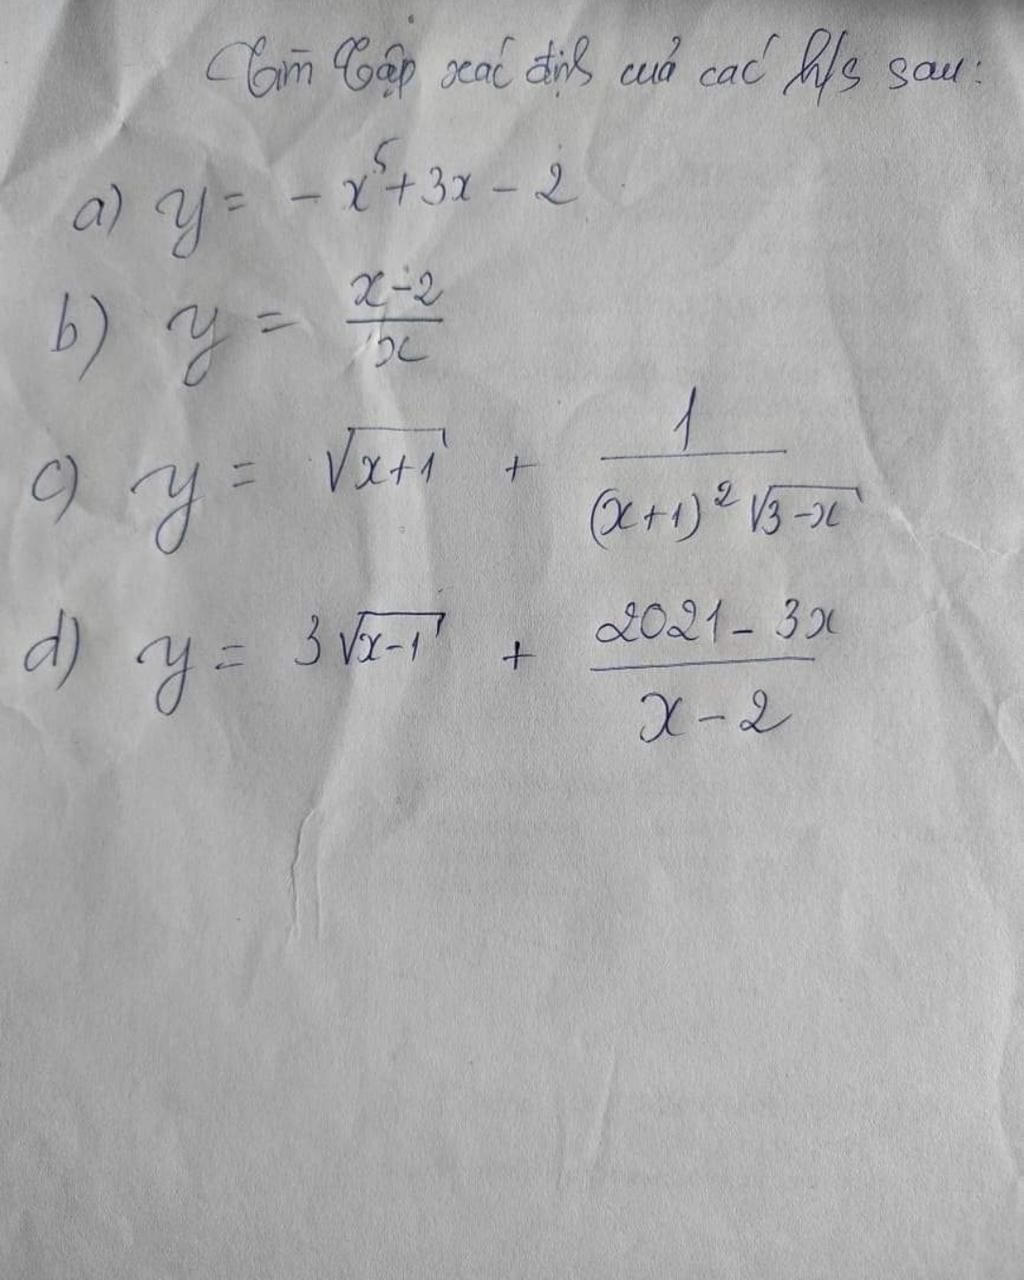 Tìm Tập xác định cuả các h/s sau:
a) y = - x⁵ + 3x - 2
b) y = \frac{x-2}{x}
c) y = \sqrt{x+1} + \frac{1}{(x+1)^2 \sqrt{3-x}}
d) y = 3\sqrt{x-1} + \frac{2021-3x}{x-2}